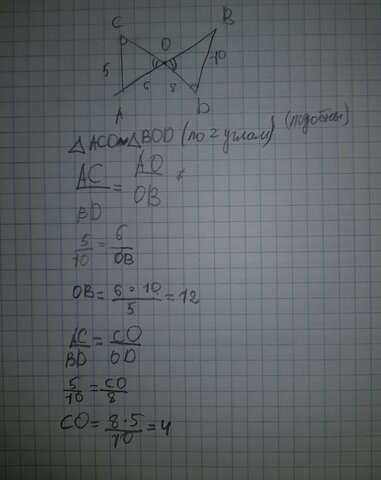 C
B
O
5
10
6
8
A
D
△ACO ~ △BOD (по 2 углам) (подобны)
AC/BD = AO/OB
5/10 = 6/OB
OB = 6·10/5 = 12
AC/BD = CO/OD
5/10 = CO/8
CO = 8·5/10 = 4